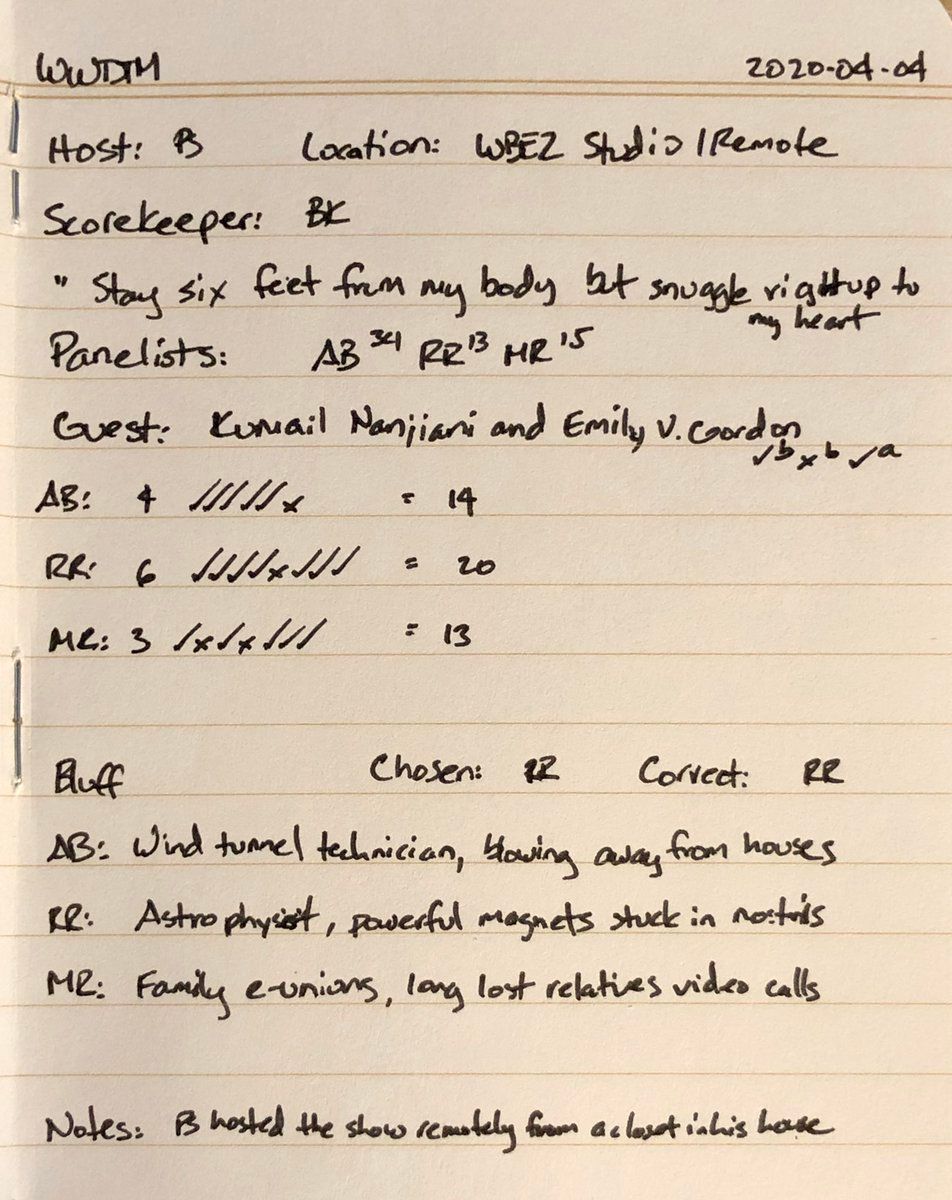 WWDTM 2020-04-04
Host: PS Location: WBEZ Studio / Remote
Scorekeeper: BK
" Stay six feet from my body but snuggle right up to
my heart
Panelists: AB 34 RR 13 MR 15
Guest: Kumail Nanjiani and Emily V. Gordon
✓b ×b ✓a
AB: 4 ✓✓✓✓✓× = 14
RR: 6 ✓✓✓✓×✓✓✓ = 20
MR: 3 ✓×✓×✓✓✓ = 13
Bluff Chosen: RR Correct: RR
AB: Wind tunnel technician, blowing away from houses
RR: Astrophysist, powerful magnets stuck in nostrils
MR: Family e-unions, long lost relatives video calls
Notes: PS hosted the show remotely from a closet in his house